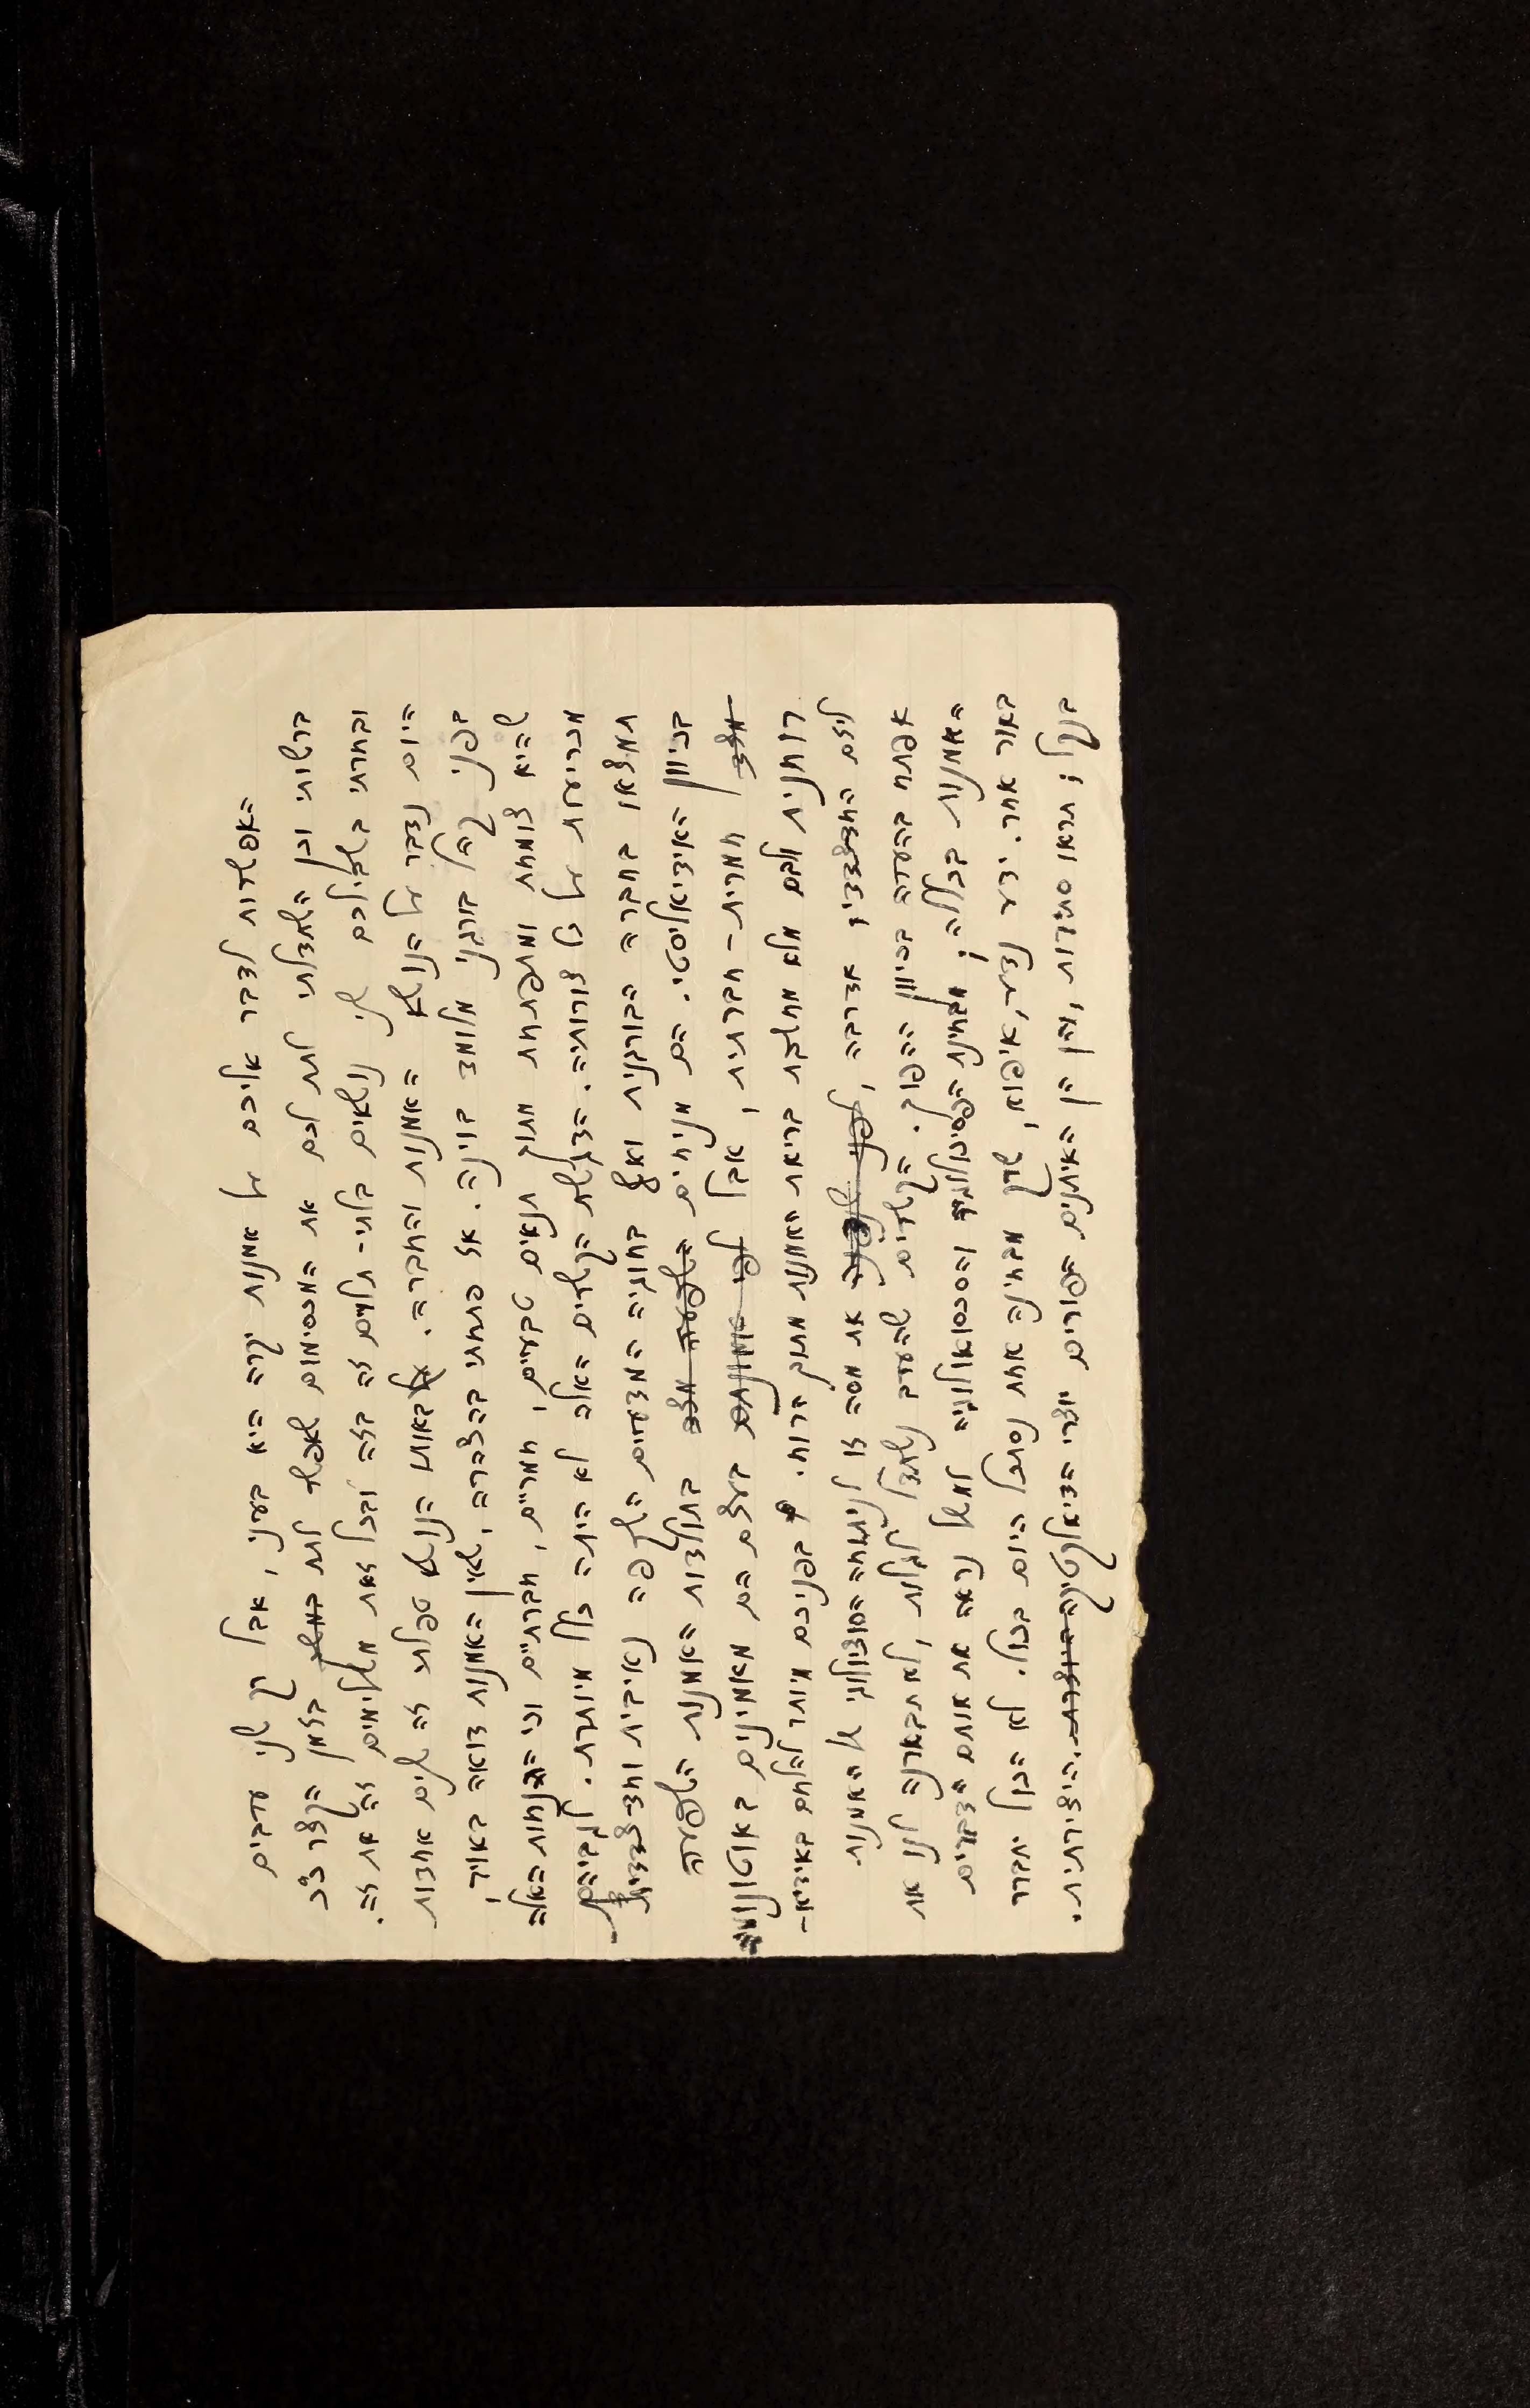 האפשרות לדבר אליכם על אמנות יקרה היא בעיני, אבל רק שני ערבים
ברשותי וכן השתדלתי לתת לכם את המכסימום שאפשר לתת במשך בזמן הקצר כ"כ
ובחרתי בשבילכם שני נושאים בלתי-תלויים זה בזה ובכל זאת משלימים זה את זה.
היום נדבר על הנושא האמנות והחברה. באותו הנושא טפלתי זה שנים אחדות
בפני קהל בורגני מלומד בוינה. אז פתחתי בהצהרה, שאין האמנות דואה באויר,
שהיא צומחת ומתפתחת מתוך תנאים טבעיים, חמריים, חברתיים וכי הנחות האלה
מכריעות על כל צורותיה. הדגשת הקשרים האלה לא היתה כלל מיותרת. לגביהם
תמצאו בחברה הבורגנית ואף בחוגיה המדעיים השקפה נאיבית וחד-צדדית
בכיוון האידיאליסטי. הם מניחים השפעה מצד בתולדות האמנות השפעה
מצד חמרית-חברתית, אבל לפי אמונתם בעצם הם מאמינים באוטונומיה
רוחנית ולכם מלא מחשבת בריאת האמנות מתוך הרוח. בפניכם מיותר להלחם באידיא-
ליזם החדצדדי, אדרבה, לפני את מסה זו לניתוחה הסוציולוגי של האמנות
אפתח בהערה בכיוון ההפוך. הקשרים שהערב נשתדל לגלות, לא תבארנה לנו את
האמנות בכללה; מבחינת הפסיכולוגיה והסכסואולוגיה למשל נראה את אותם הדברים
באור אחר. ידע נדע, איפוא, שרק מבחינה אחת נסתכל היום בכול. לא הכול יתברר
בנקל; תראו סתירות, והן הן האיתנים הפורים יוצרי הדיאלקטיקה היוצרת. היצירתית.